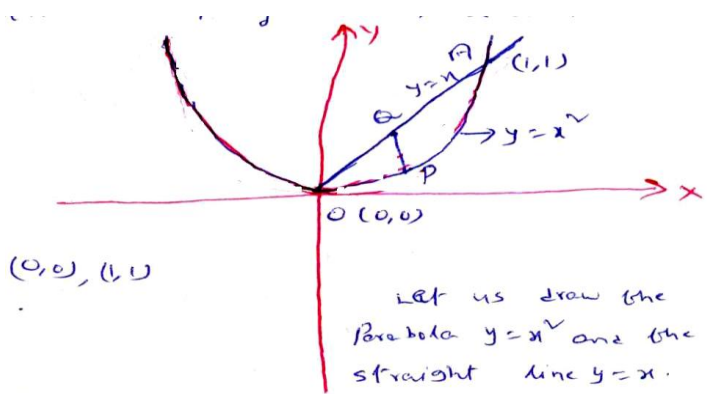 Y
A (1,1)
y=x
Q
→ y = x²
P
X
O (0,0)
(0,0), (1,1)
Let us draw the
Parabola y = x² and the
straight line y = x.